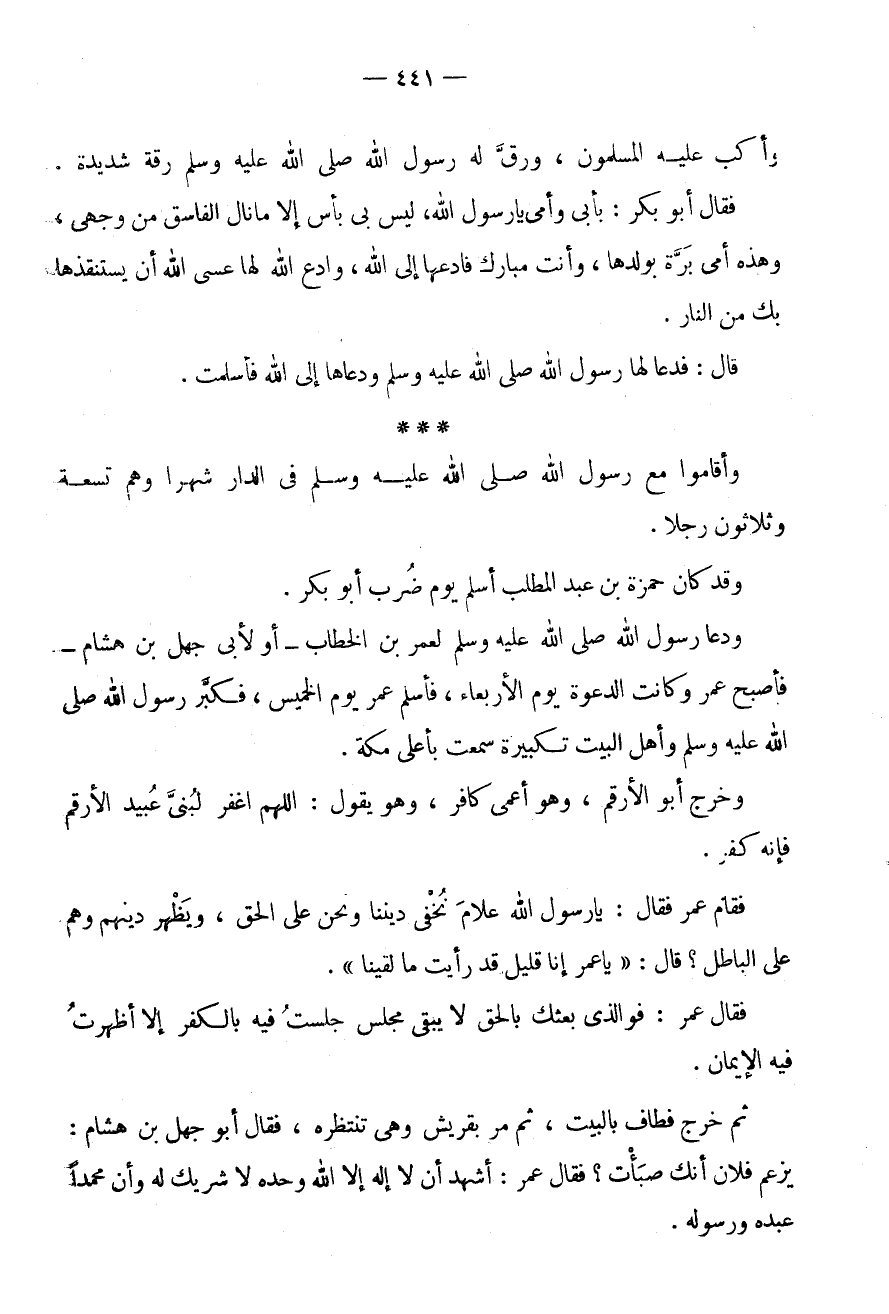 — ٤٤١ —
وأكب عليه المسلمون ، ورقَّ له رسول الله صلى الله عليه وسلم رقة شديدة .
فقال أبو بكر : بأبى وأمى يارسول الله، ليس بى بأس إلا مانال الفاسق من وجهى ،
وهذه أمى بَرَّة بولدها ، وأنت مبارك فادعها إلى الله ، وادع الله لها عسى الله أن يستنقذها
بك من النار .
قال : فدعا لها رسول الله صلى الله عليه وسلم ودعاها إلى الله فأسلمت .
***
وأقاموا مع رسول الله صلى الله عليه وسلم فى الدار شهرا وهم تسعة
وثلاثون رجلا .
وقد كان حمزة بن عبد المطلب أسلم يوم ضُرب أبو بكر .
ودعا رسول الله صلى الله عليه وسلم لعمر بن الخطاب ــ أو لأبى جهل بن هشام ــ
فأصبح عمر وكانت الدعوة يوم الأربعاء ، فأسلم عمر يوم الخميس ، فكبَّر رسول الله صلى
الله عليه وسلم وأهل البيت تكبيرة سمعت بأعلى مكة .
وخرج أبو الأرقم ، وهو أعمى كافر ، وهو يقول : اللهم اغفر لبُنىَّ عُبيد الأرقم
فإنه كفر .
فقام عمر فقال : يارسول الله علامَ نُخْفى ديننا ونحن على الحق ، ويَظْهر دينهم وهم
على الباطل ؟ قال : « ياعمر إنا قليل قد رأيت ما لقينا » .
فقال عمر : فوالذى بعثك بالحق لا يبقى مجلس جلستُ فيه بالكفر إلا أظهرتُ
فيه الإيمان .
ثم خرج فطاف بالبيت ، ثم مر بقريش وهى تنتظره ، فقال أبو جهل بن هشام :
يزعم فلان أنك صبَأْت ؟ فقال عمر : أشهد أن لا إله إلا الله وحده لا شريك له وأن محمداً
عبده ورسوله .